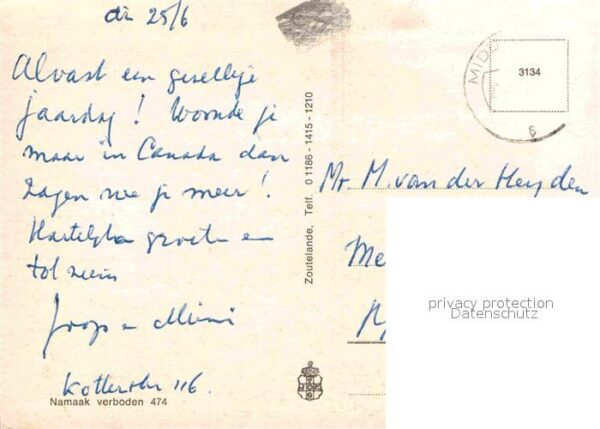 di 25/6
Alvast een gezellige
jaardag! Woonde je
maar in Canada dan
zagen we je meer!
Hartelijke groeten en
tot ziens
Joop en Mimi
116.
Namaak verboden 474
Zoutelande, Telf. 0 1186 - 1415 - 1210
MIDD
6
3134
Mr. M. van der Heyden
Me
privacy protection
Datenschutz